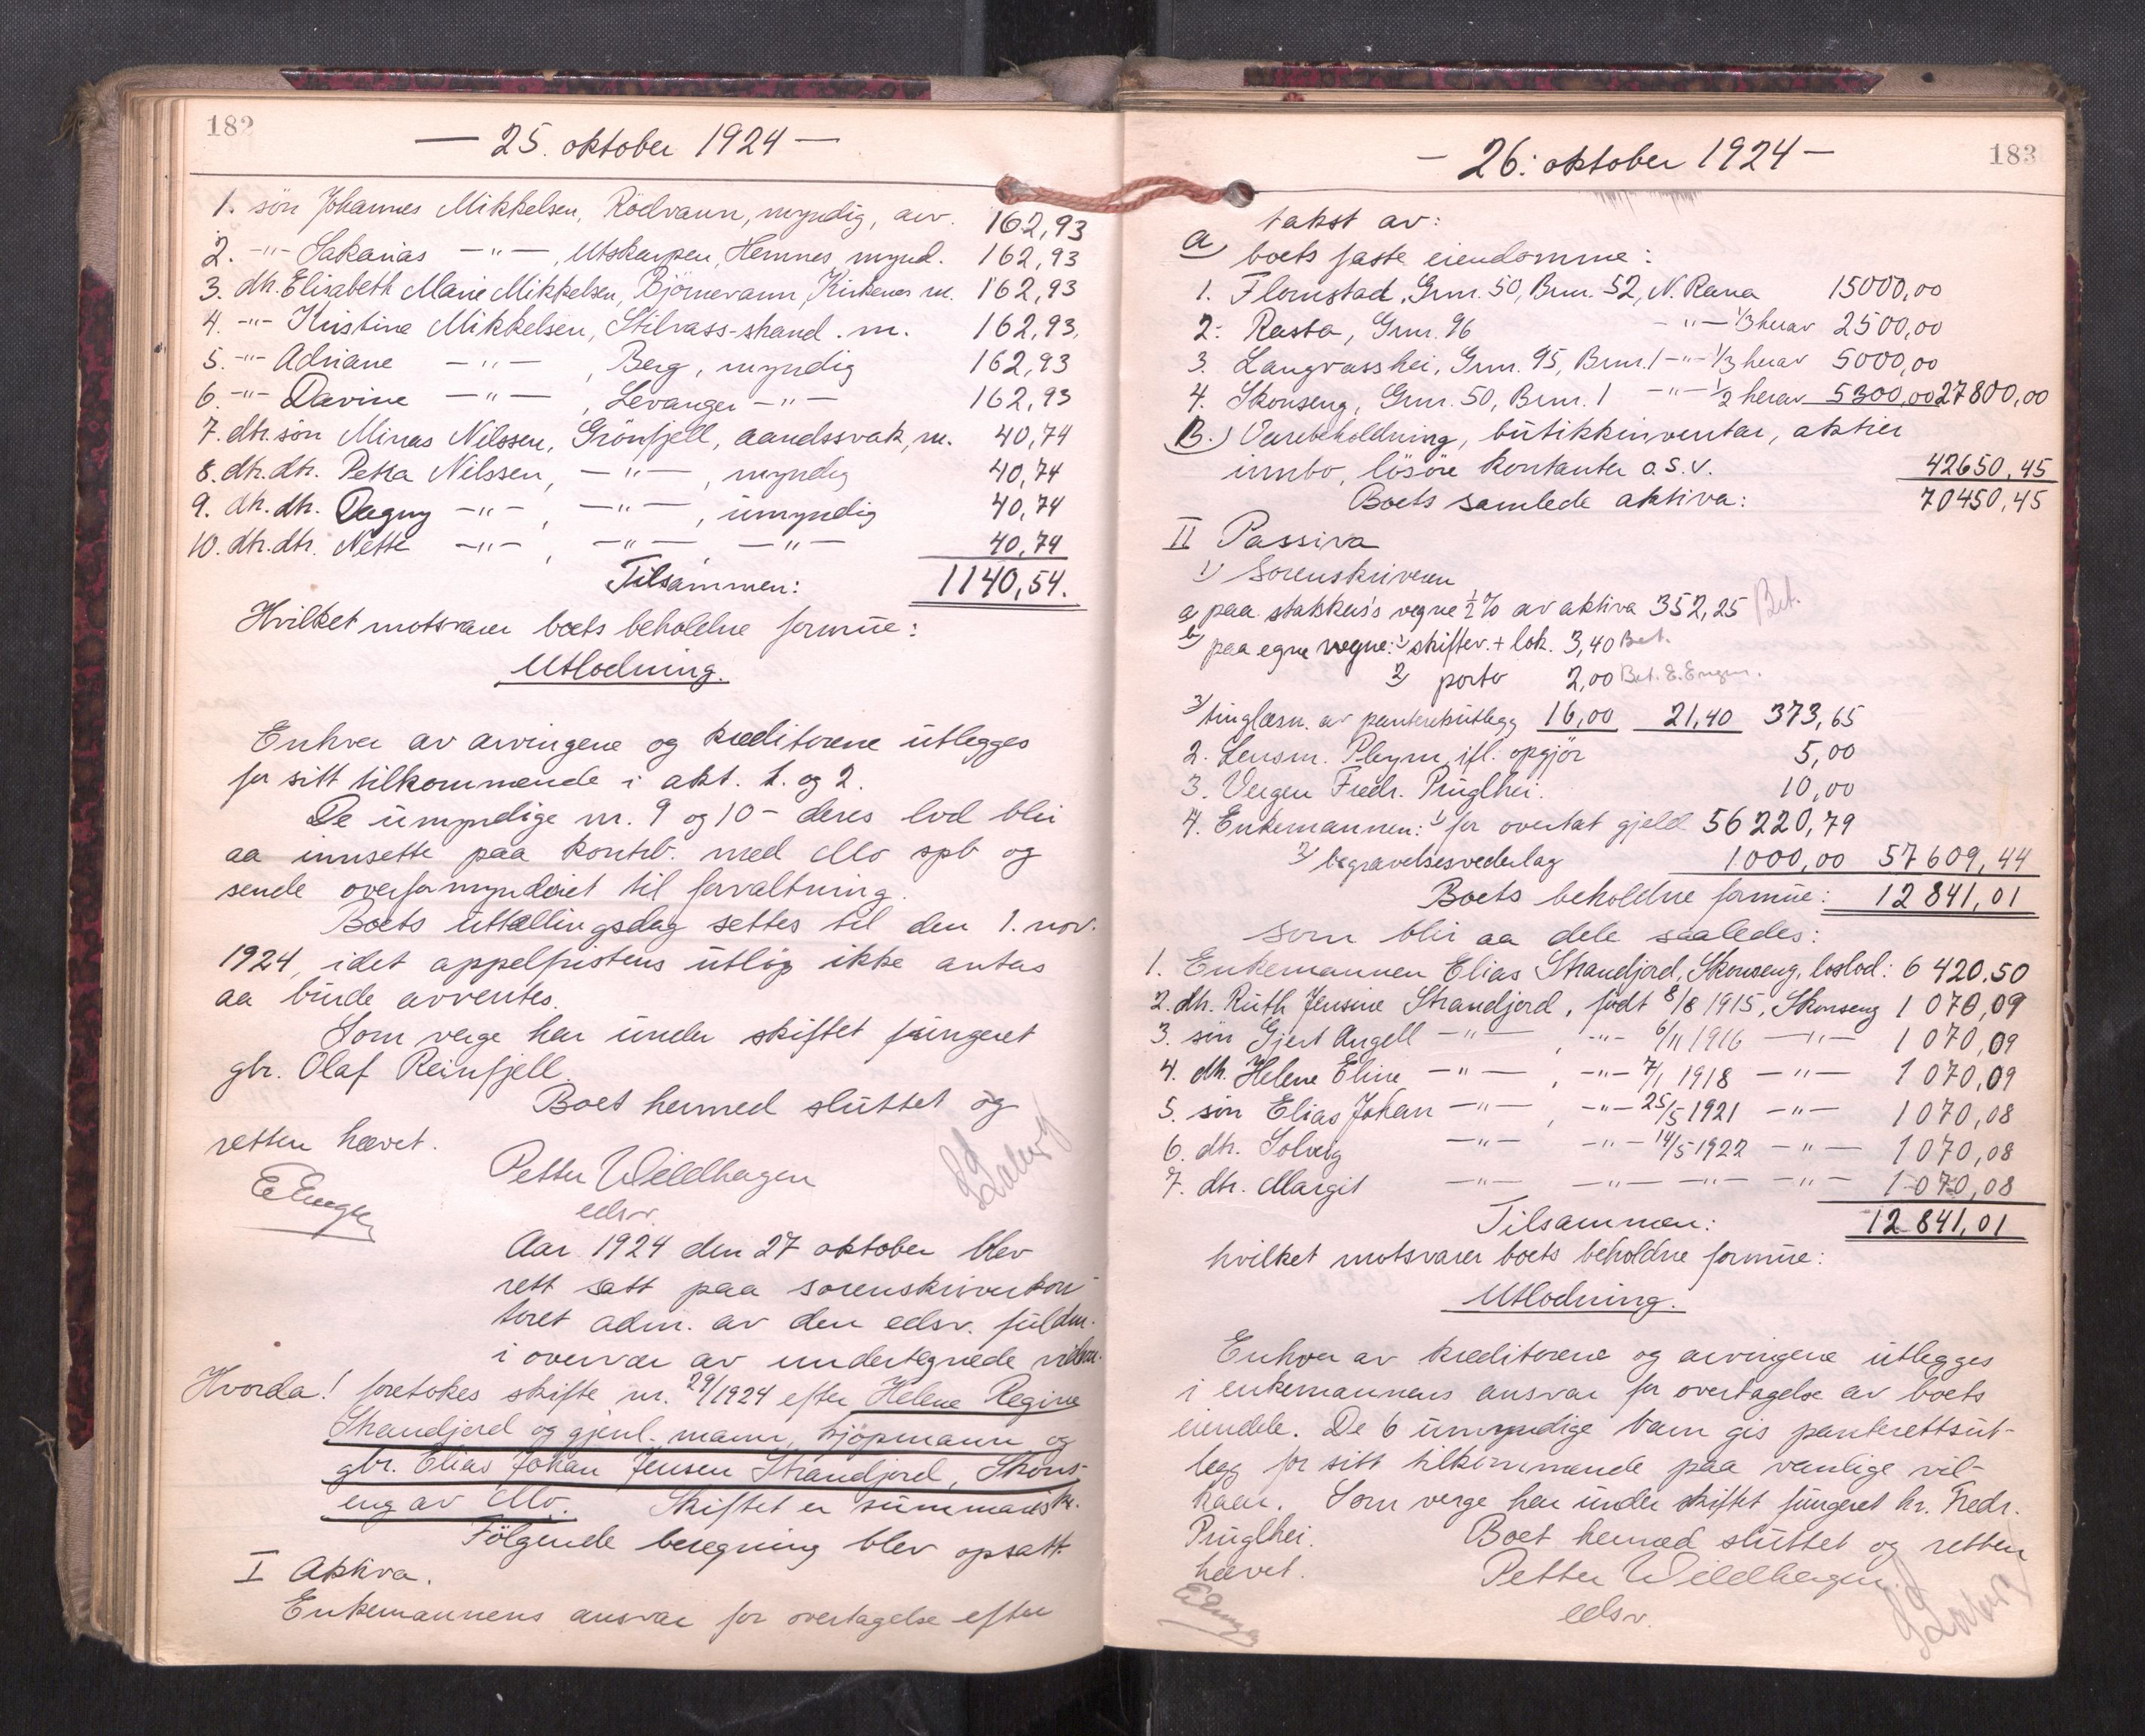 182
— 25. oktober 1924 —
1. søn Johannes Mikkelsen, Rödvann, myndig, arv. 162,93
2. -"- Sakarias —"—, Utskarpen, Hemnes, mynd. 162,93
3. dtr. Elisabeth Marie Mikkelsen, Björnevann, Kirkenes m. 162,93
4. -"- Kristine Mikkelsen, Stilvass-strand. m. 162,93.
5. -"- Adriane —"—, Berg, myndig 162,93
6. -"- Davine —"—, Levanger —"— 162,93
7. dtr. sön Minas Nilssen, Grönfjell, aandssvak, m. 40,74
8. dtr. dtr. Petra Nilssen, —"—, myndig 40,74
9. dtr. dtr. Dagny —"—, —"—, umyndig 40,74
10. dtr. dtr. Nette —"—, —"—, —"— 40,74
Tilsammen: 1140,54.
Hvilket motsvarer boets beholdne formue:
Utlodning.
Enhver av arvingene og kreditorene utlegges
for sitt tilkommende i akt. 1. og 2.
De umyndige nr. 9 og 10 - deres lod blir
aa innsette paa kontrb. med Mo spb og
sende overformynderiet til forvaltning.
Boets uttællingsdag settes til den 1. nov.
1924, idet appelfristens utlöp ikke antas
aa burde avventes.
Som verge har under skiftet fungeret
gbr. Olaf Reinfjell.
Boet hermed sluttet og
retten hævet.
Petter Wildhagen
edsv.
E Engen
Aar 1924 den 27 oktober blev
rett satt paa sorenskriverkon-
toret adm. av den edsv. fuldm.
i overvær av undertegnede vidne.
Hvorda! foretokes skifte nr. 29/1924 efter Helene Regine
Strandjord og gjenl. mann, kjöpmann og
gbr. Elias Johan Jensen Strandjord, Skons-
eng av Mo. Skiftet er summarisk.
Fölgende beregning blev opsatt.
I Aktiva.
Enkemannens ansvar for overtagelse efter
— 26: oktober 1924 —
183
takst av:
a) boets faste eiendomme:
1. Flomstad, Gnr. 50, Bnr. 52, N. Rana 15000,00
2. Rasta, Gnr. 96 —"— 1/3 herav 2500,00
3. Langvasshei, Gnr. 95, Bnr. 1 —"— 1/3 herav 5000,00
4. Skonseng, Gnr. 50, Bnr. 1 —"— 1/2 herav 5300,00 27800,00
B.) Varebeholdning, butikkinventar, aktier
innbo, lösöre kontanter o.s.v. 42650,45
Boets samlede aktiva: 70450,45
II Passiva
1) Sorenskriveren
a) paa statskas's vegne 1/2 % av aktiva 352,25 Bet.
b) paa egne vegne: 1) skiftev. + lok. 3,40 Bet.
2) porto 2,00 Bet. E. Engen.
3) tinglæsn. av panterettsutlegg 16,00 21,40 373,65
2. Lensm. Pleym, ifl. opgjör 5,00
3. Vergen Fredr. Prüglhei. 10,00
4. Enkemannen: 1) for overtat gjeld 56220,79
2) begravelsesvederlag 1000,00 57609,44
Boets beholdne formue: 12841,01
som blir aa dele saaledes:
1. Enkemannen Elias Strandjord, Skonseng, boslod: 6420.50
2. dtr. Ruth Jensine Strandjord, födt 8/8 1915, Skonseng 1070,09
3. sön Gjert Angell —"—, -"- 6/11 1916 —"— 1070,09
4. dtr. Helene Eline —"—, -"- 7/1 1918 —"— 1070,09
5. sön Elias Johan —"—, -"- 25/5 1921 —"— 1070,08
6. dtr. Solveig —"— -"- 14/5 1922 —"— 1070,08
7. dtr. Margit —"— —"— —"— —"— 1070,08
Tilsammen: 12841,01
hvilket motsvarer boets beholdne formue:
Utlodning.
Enhver av kreditorene og arvingene utlegges
i enkemannens ansvar for overtagelse av boets
eiendele. De 6 umyndige barn gis panterettsut-
legg for sitt tilkommende paa vanlige vil-
kaar. Som verge har under skiftet fungeret hr. Fredr.
Prüglhei. Boet hermed sluttet og retten
hævet. Petter Wildhagen.
edsv.
E Engen